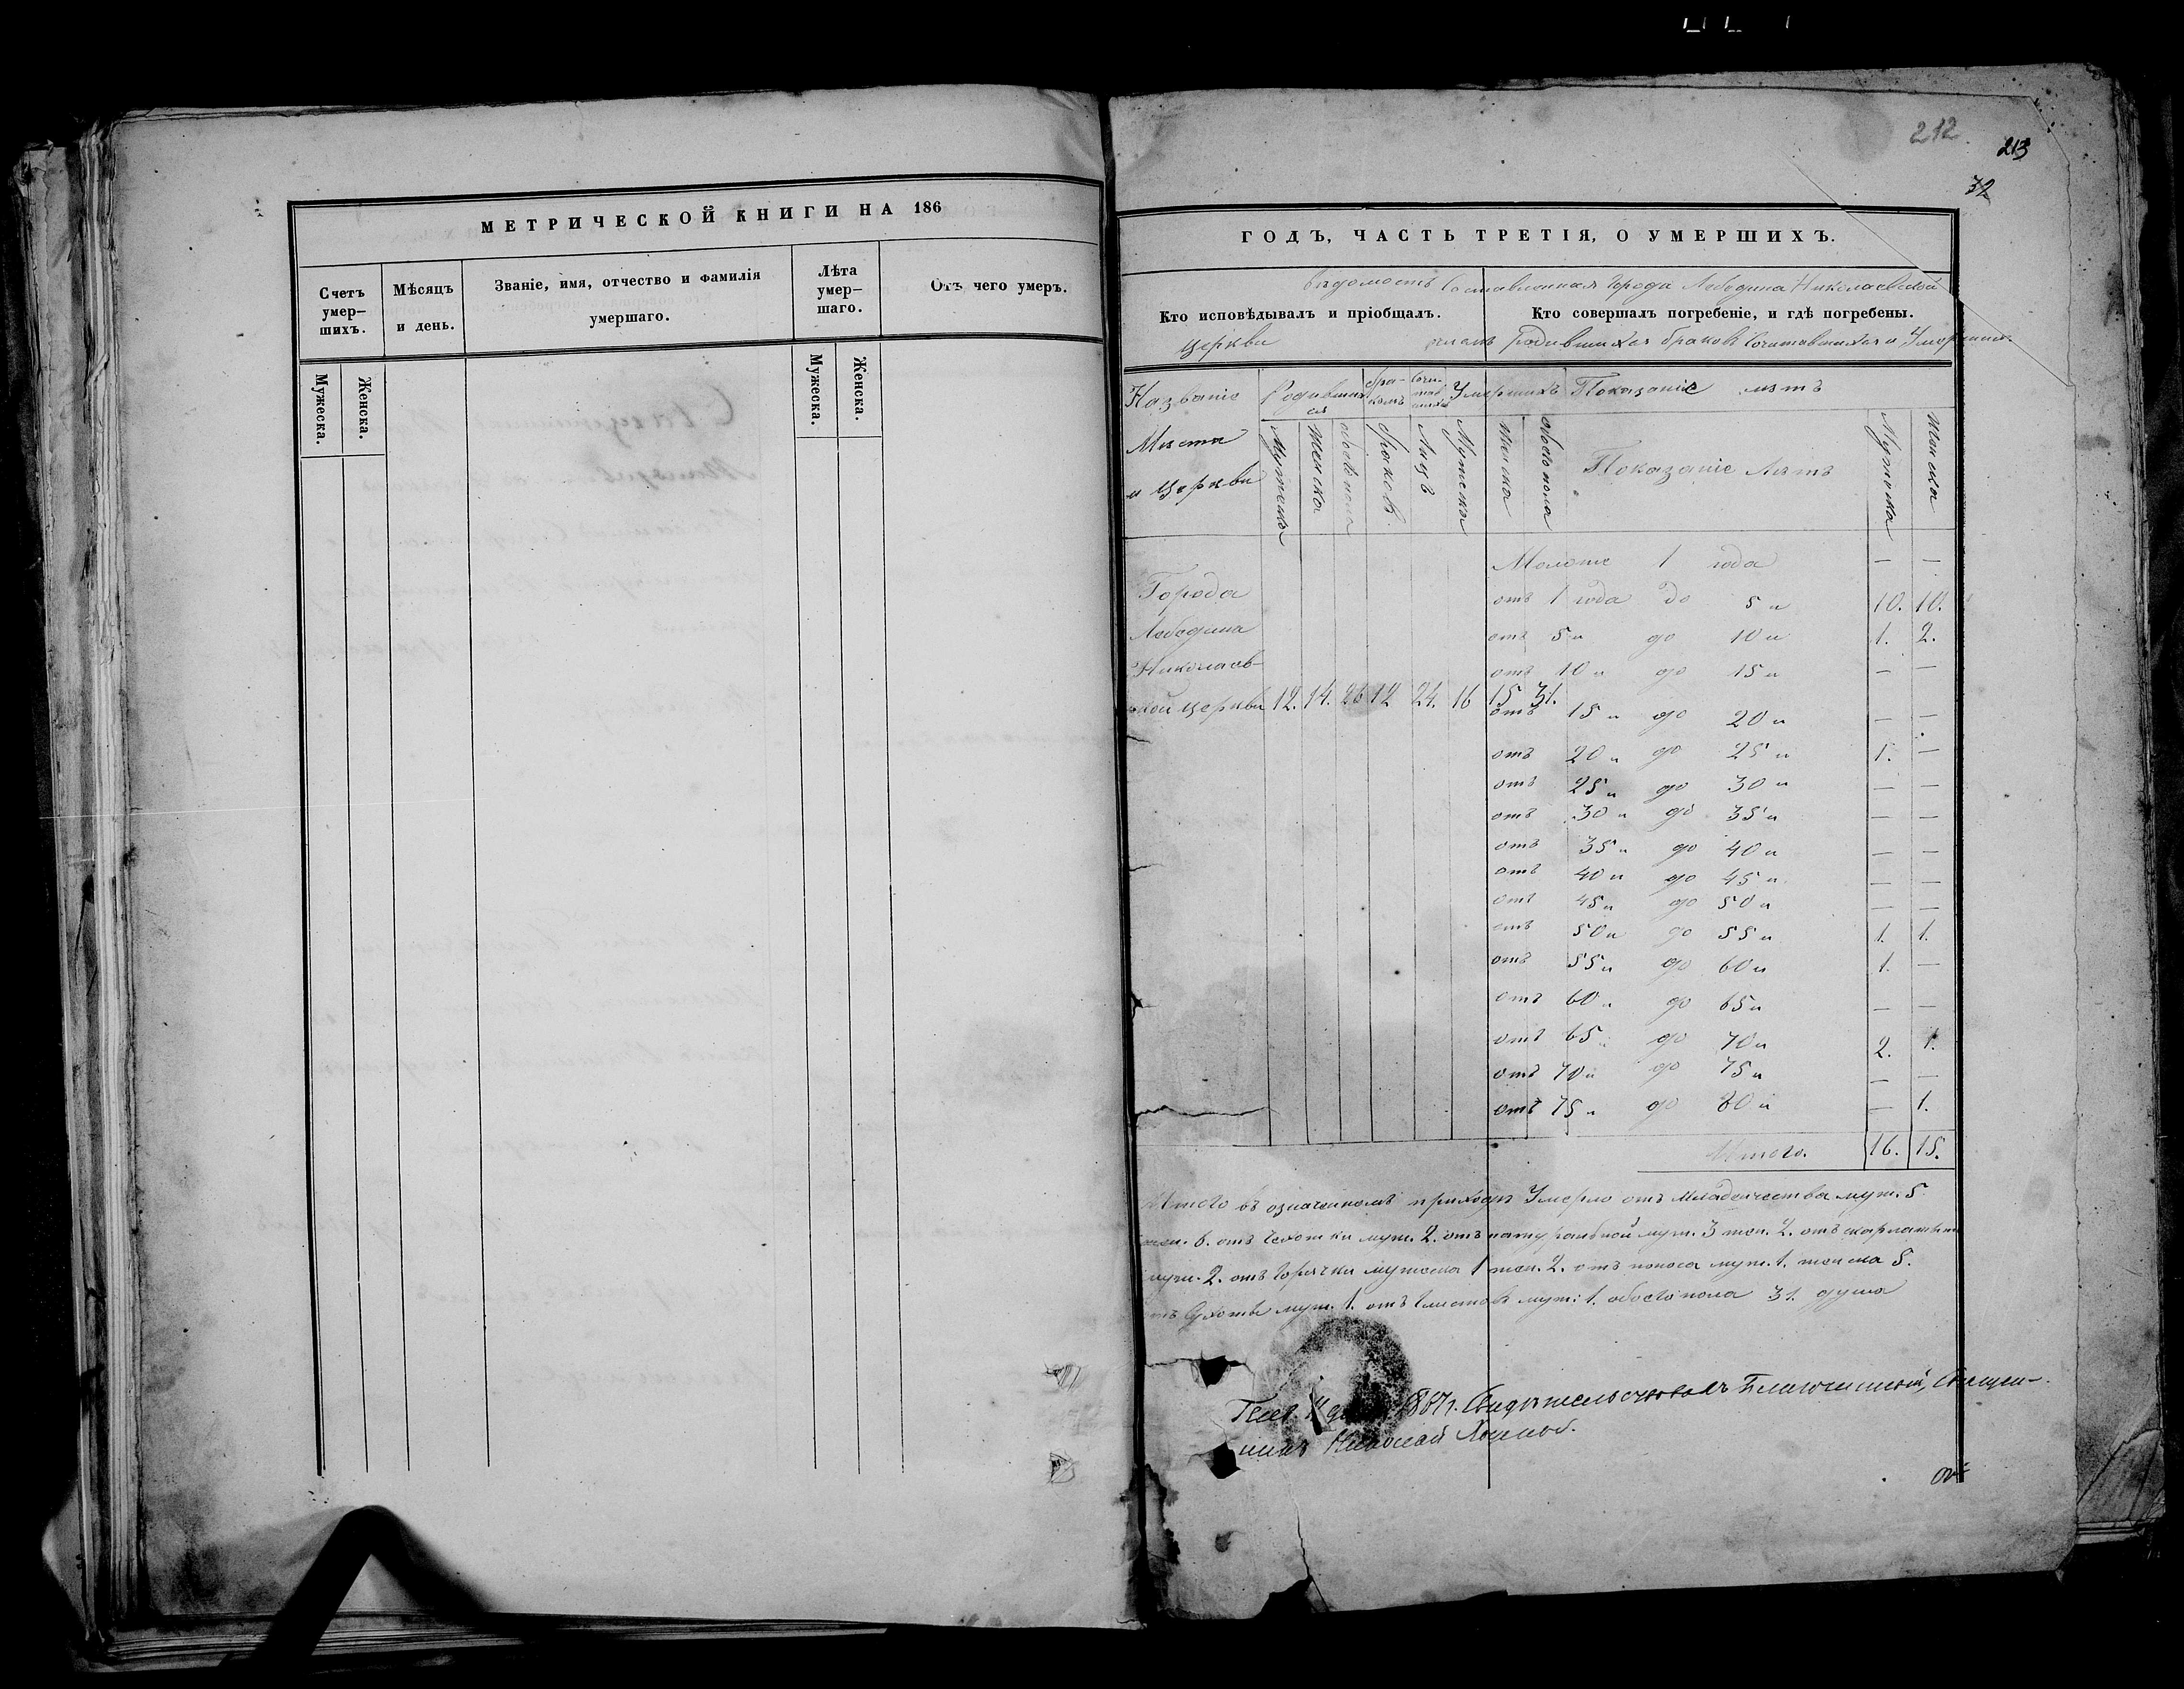 МЕТРИЧЕСКОЙ КНИГИ НА 186
Счетъ умер-шихъ.
Мѣсяцъ и день.
Званіе, имя, отчество и фамилія умершаго.
Лѣта умер-шаго.
Отъ чего умеръ.
Мужеска.
Женска.
Мужеска.
Женска.
212
213
32
ГОДЪ, ЧАСТЬ ТРЕТІЯ, О УМЕРШИХЪ.
Вѣдомость Составленная Города Лебедина Николаевской
Кто исповѣдывалъ и пріобщалъ.
Кто совершалъ погребеніе, и гдѣ погребены.
церкви родившихся браковъ Сочитавшихся и Умершихъ
Названіе Родивших ся Умершихъ Показаніе лѣтъ
Мѣста
и Церкви
Мужеска
Женска
обоего пола
браковъ.
Лицъ
Мужеска
Женска
обоего пола
Показаніе Лѣтъ
Мужеска
Женска
Города
Лебедина
Николаев-
ской церкви 12. 14. 26 12 24. 16 15 31.
Моложе 1 года — —
отъ 1 года до 5 и 10. 10.
отъ 5 и до 10 и 1. 2.
отъ 10 и до 15 и — —
отъ 15 и до 20 и — —
отъ 20 и до 25 и 1. —
отъ 25 и до 30 и — —
отъ 30 и до 35 и — —
отъ 35 и до 40 и — —
отъ 40 и до 45 и — —
отъ 45 и до 50 и — —
отъ 50 и до 55 и 1. 1.
отъ 55 и до 60 и 1. —
отъ 60 и до 65 и — —
отъ 65 и до 70 и 2. 1.
отъ 70 и до 75 и — —
отъ 75 и до 80 и — 1.
Итого. 16. 15.
Итого въ означенномъ приходѣ Умерло отъ Младенчества муж. 5
жен. 6. отъ Чехотки муж. 2. отъ натуральной муж. 3 жен. 2. отъ скарлатины
муж. 2. отъ Горячки мужеска 1 жен. 2. отъ поноса муж. 1. женска 5.
отъ Сухоты муж. 1. отъ Глистовъ муж: 1. обоего пола 31. душа
1867 г. Свидѣтельствовалъ Благочинный, Священ-
никъ Николай